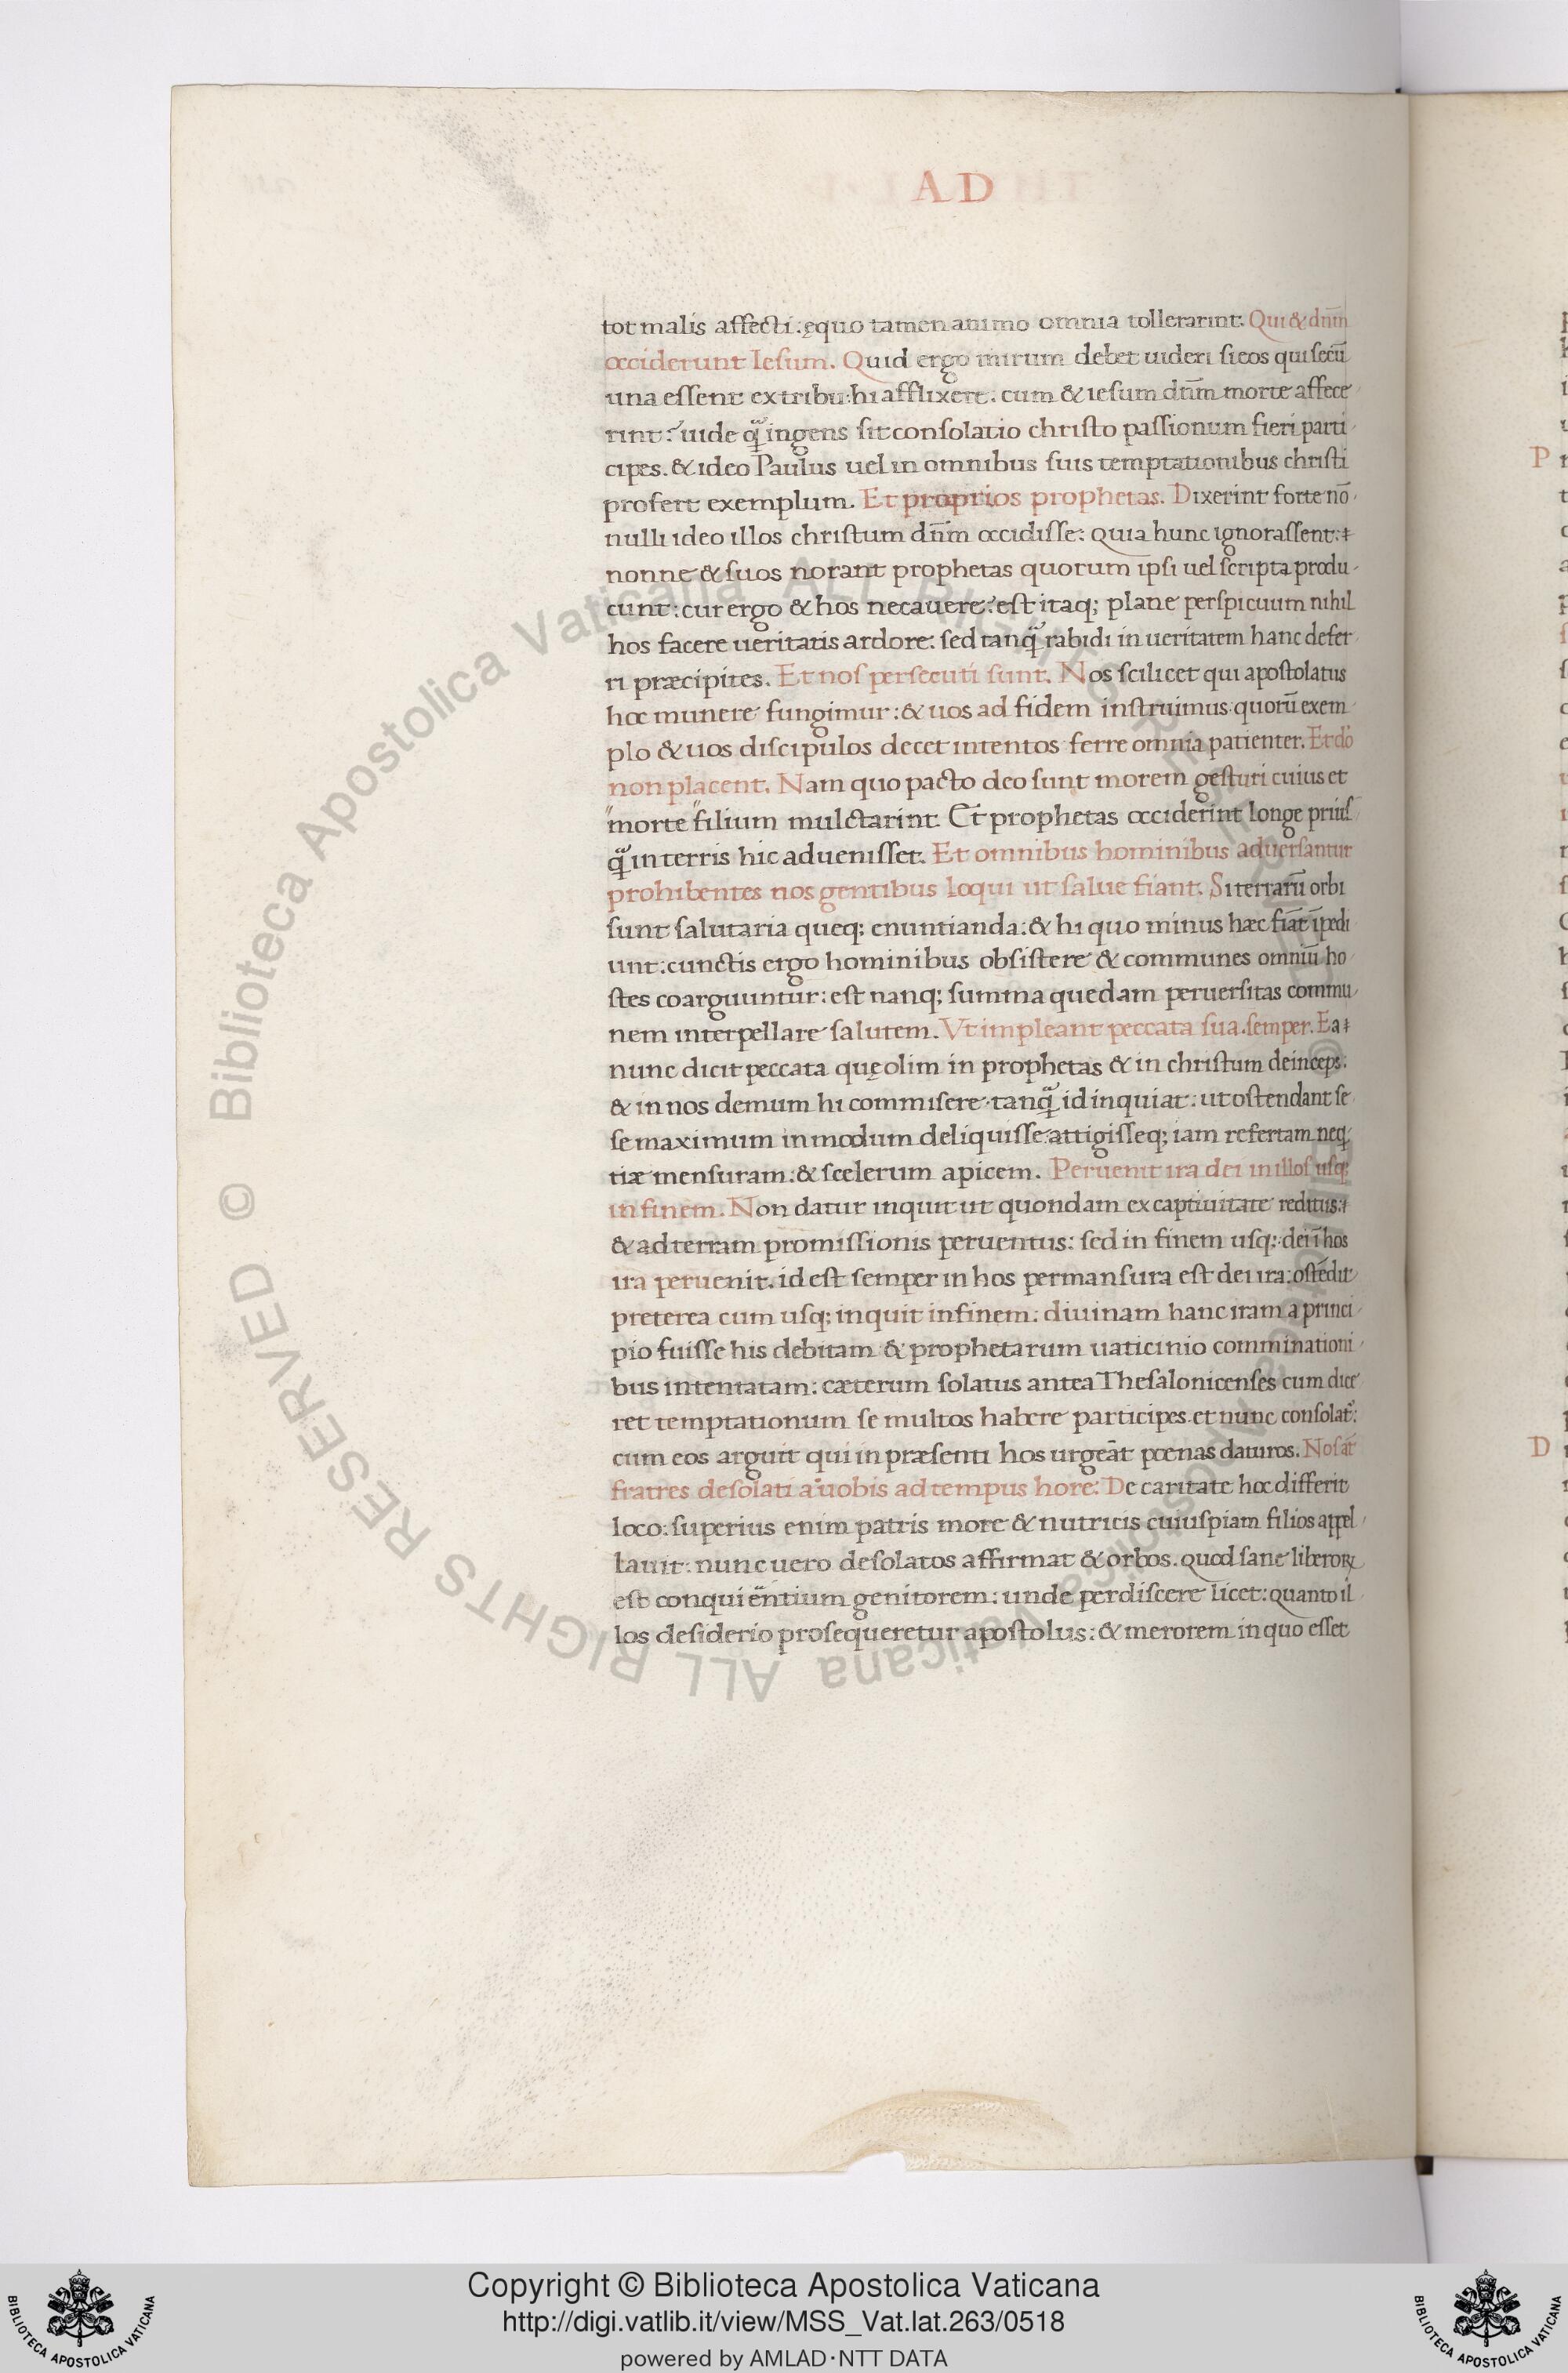 AD
tot malis affecti: ęquo tamen animo omnia tollerarint. Qui & dn̄m
occiderunt Iesum. Quid ergo mirum debet uideri si eos qui secū
una essent ex tribu: hi afflixere: cum & iesum dn̄m morte affece
rint? uide q̄ ingens sit consolatio christo passionum fieri parti
cipes. & ideo Paulus uel in omnibus suis temptationibus christi
profert exemplum. Et proprios prophetas. Dixerint forte nō
nulli ideo illos christum dn̄m occidisse: quia hunc ignorassent:
nonne & suos norant prophetas quorum ipsi uel scripta produ
cunt: cur ergo & hos necauere? est itaq; plane perspicuum nihil
hos facere ueritatis ardore: sed tanq̄ rabidi in ueritatem hanc defer
ri præcipites. Et nos persecuti sunt. Nos scilicet qui apostolatus
hoc munere fungimur: & uos ad fidem instruimus: quorū exem
plo & uos discipulos decet intentos ferre omnia patienter. Et dō
non placent. Nam quo pacto deo sunt morem gesturi cuius et
morte filium mulctarint. Et prophetas occiderint longe prius
q̄ in terris hic aduenisset. Et omnibus hominibus aduersantur
prohibentes nos gentibus loqui ut salue fiant. Si terrarū orbi
sunt salutaria queq; enuntianda: & hi quo minus hæc fiāt īpedi
unt: cunctis ergo hominibus obsistere & communes omniū ho
stes coarguuntur: est nanq; summa quedam peruersitas commu
nem interpellare salutem. Vt impleant peccata sua semper. Ea
nunc dicit peccata quę olim in prophetas & in christum deinceps:
& in nos demum hi commisere. tanq̄ id inquiat: ut ostendant se
se maximum in modum deliquisse: attigisseq; iam refertam neq
tiæ mensuram: & scelerum apicem. Peruenit ira dei in illos usq;
in finem. Non datur inquit ut quondam ex captiuitate reditus:
& ad terram promissionis peruentus: sed in finem usq; dei ī hos
ira peruenit. id est semper in hos permansura est dei ira: ostēdit
preterea cum usq; inquit in finem: diuinam hanc iram a princi
pio fuisse his debitam & prophetarum uaticinio comminationi
bus intentatam: cæterum solatus antea Thesalonicenses cum dice
ret temptationum se multos habere participes. et nunc consolat̄:
cum eos arguit qui in præsenti hos urgeāt pœnas daturos. Nos āt
fratres desolati a uobis ad tempus hore: De caritate hoc differit
loco: superius enim patris more & nutricis cuiuspiam filios appel
lauit: nunc uero desolatos affirmat & orbos. quod sane liberoꝝ
est conquirentium genitorem: unde perdiscere licet: quanto il
los desiderio prosequeretur apostolus: & merorem in quo esset
P
D
© Biblioteca Apostolica Vaticana ALL RIGHTS RESERVED
Copyright © Biblioteca Apostolica Vaticana
http://digi.vatlib.it/view/MSS_Vat.lat.263/0518
powered by AMLAD·NTT DATA
BIBLIOTECA APOSTOLICA VATICANA
BIBLIOTECA APOSTOLICA VATICANA